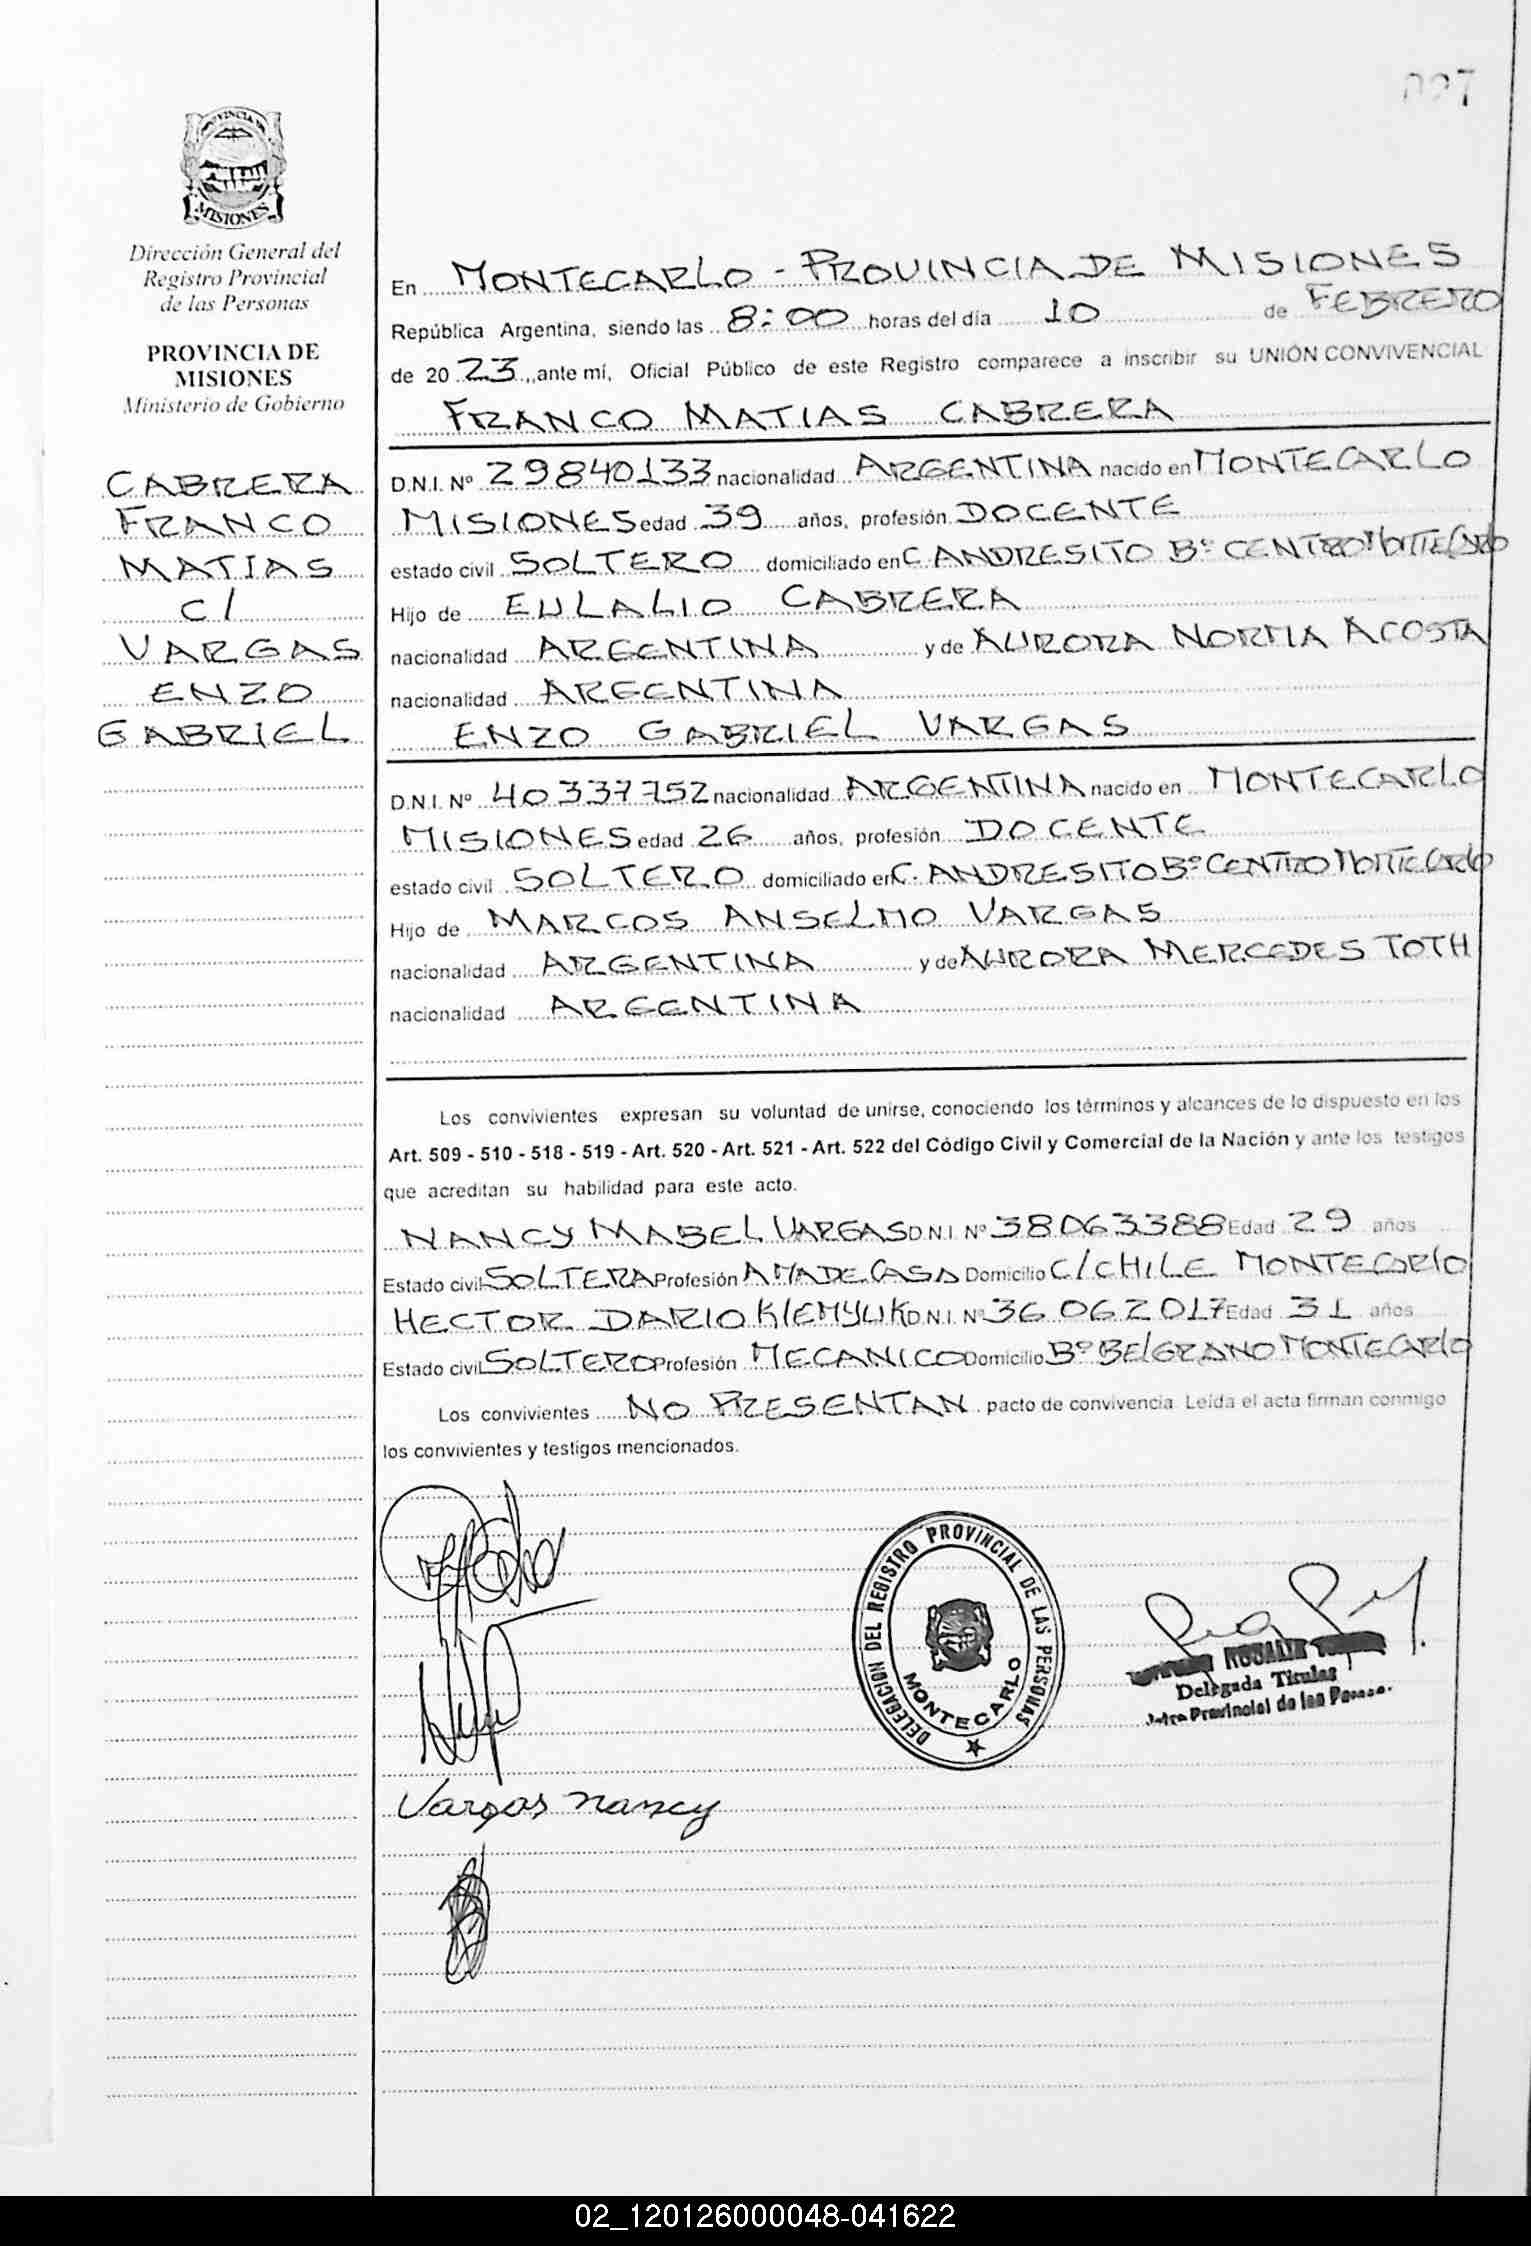 097
PROVINCIA DE
MISIONES
Dirección General del
Registro Provincial
de las Personas
PROVINCIA DE
MISIONES
Ministerio de Gobierno
CABRERA
FRANCO
MATIAS
C/
VARGAS
ENZO
GABRIEL
En MONTECARLO - PROVINCIA DE MISIONES
República Argentina, siendo las 8:00 horas del día 10 de FEBRERO
de 2023, ante mí, Oficial Público de este Registro comparece a inscribir su UNIÓN CONVIVENCIAL
FRANCO MATIAS CABRERA
D.N.I. Nº 29840133 nacionalidad ARGENTINA nacido en MONTECARLO
MISIONES edad 39 años, profesión DOCENTE
estado civil SOLTERO domiciliado en C. ANDRESITO Bº CENTRO MONTECARLO
Hijo de EULALIO CABRERA
nacionalidad ARGENTINA y de AURORA NORMA ACOSTA
nacionalidad ARGENTINA
ENZO GABRIEL VARGAS
D.N.I. Nº 40337752 nacionalidad ARGENTINA nacido en MONTECARLO
MISIONES edad 26 años, profesión DOCENTE
estado civil SOLTERO domiciliado en C. ANDRESITO Bº CENTRO MONTECARLO
Hijo de MARCOS ANSELMO VARGAS
nacionalidad ARGENTINA y de AURORA MERCEDES TOTH
nacionalidad ARGENTINA
Los convivientes expresan su voluntad de unirse, conociendo los términos y alcances de lo dispuesto en los
Art. 509 - 510 - 518 - 519 - Art. 520 - Art. 521 - Art. 522 del Código Civil y Comercial de la Nación y ante los testigos
que acreditan su habilidad para este acto.
NANCY MABEL VARGAS D.N.I. Nº 38063388 Edad 29 años
Estado civil SOLTERA Profesión AMA DE CASA Domicilio C/CHILE MONTECARLO
HECTOR DARIO KIEMYUK D.N.I. Nº 36062017 Edad 31 años
Estado civil SOLTERO Profesión MECANICO Domicilio Bº BELGRANO MONTECARLO
Los convivientes NO PRESENTAN pacto de convivencia. Leída el acta firman conmigo
los convivientes y testigos mencionados.
DELEGACION DEL REGISTRO PROVINCIAL DE LAS PERSONAS
MONTECARLO
ROSALIA
Delegada Titular
Provincial de las
Vargas Nancy
02_120126000048-041622